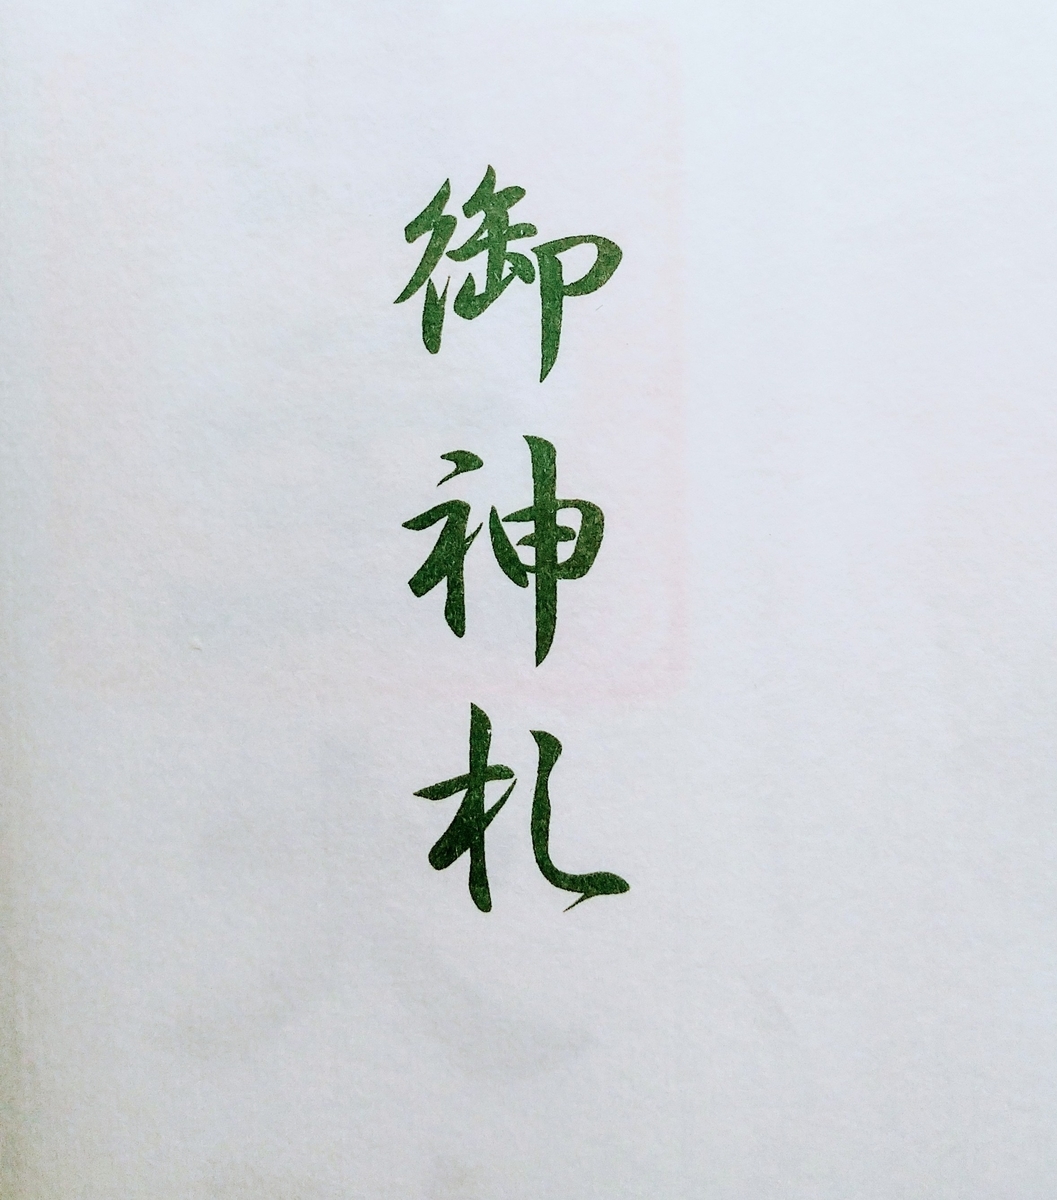 御神札